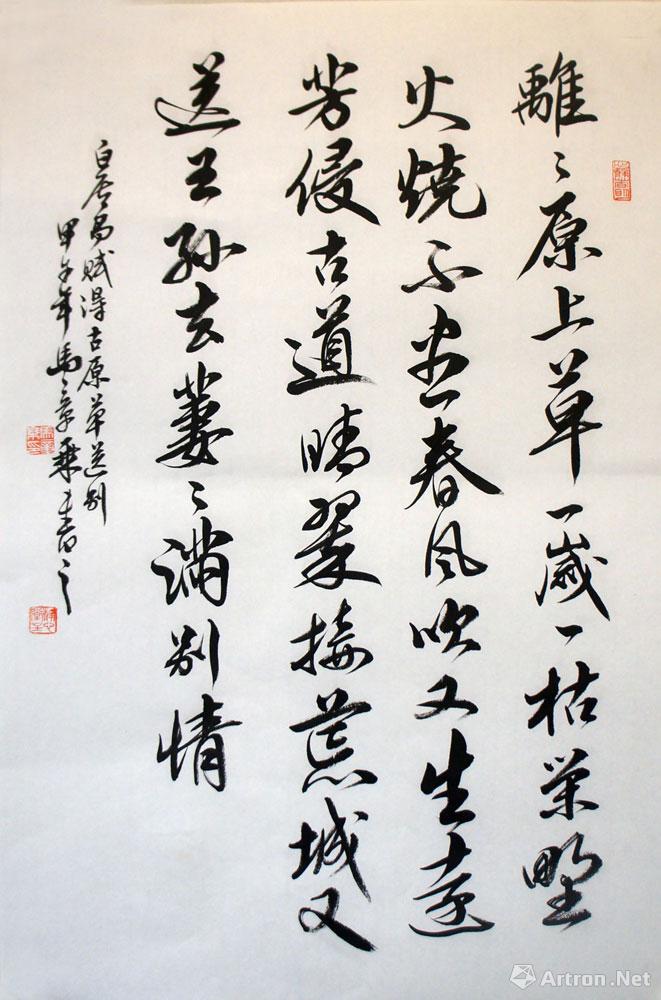 離〻原上草一歲一枯榮野
火燒不盡春風吹又生遠
芳侵古道晴翠接荒城又
送王孫去萋〻滿別情
白居易賦得古原草送別
甲午年馬章乘書之
Artron.Net